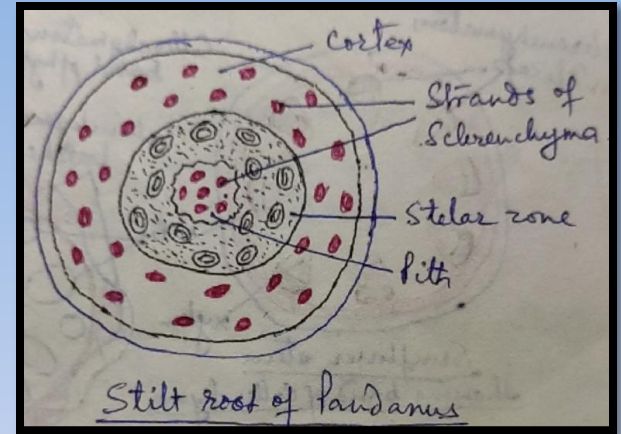 Cortex
Strands of
Sclerenchyma
Stelar zone
Pith
Stilt root of Pandanus